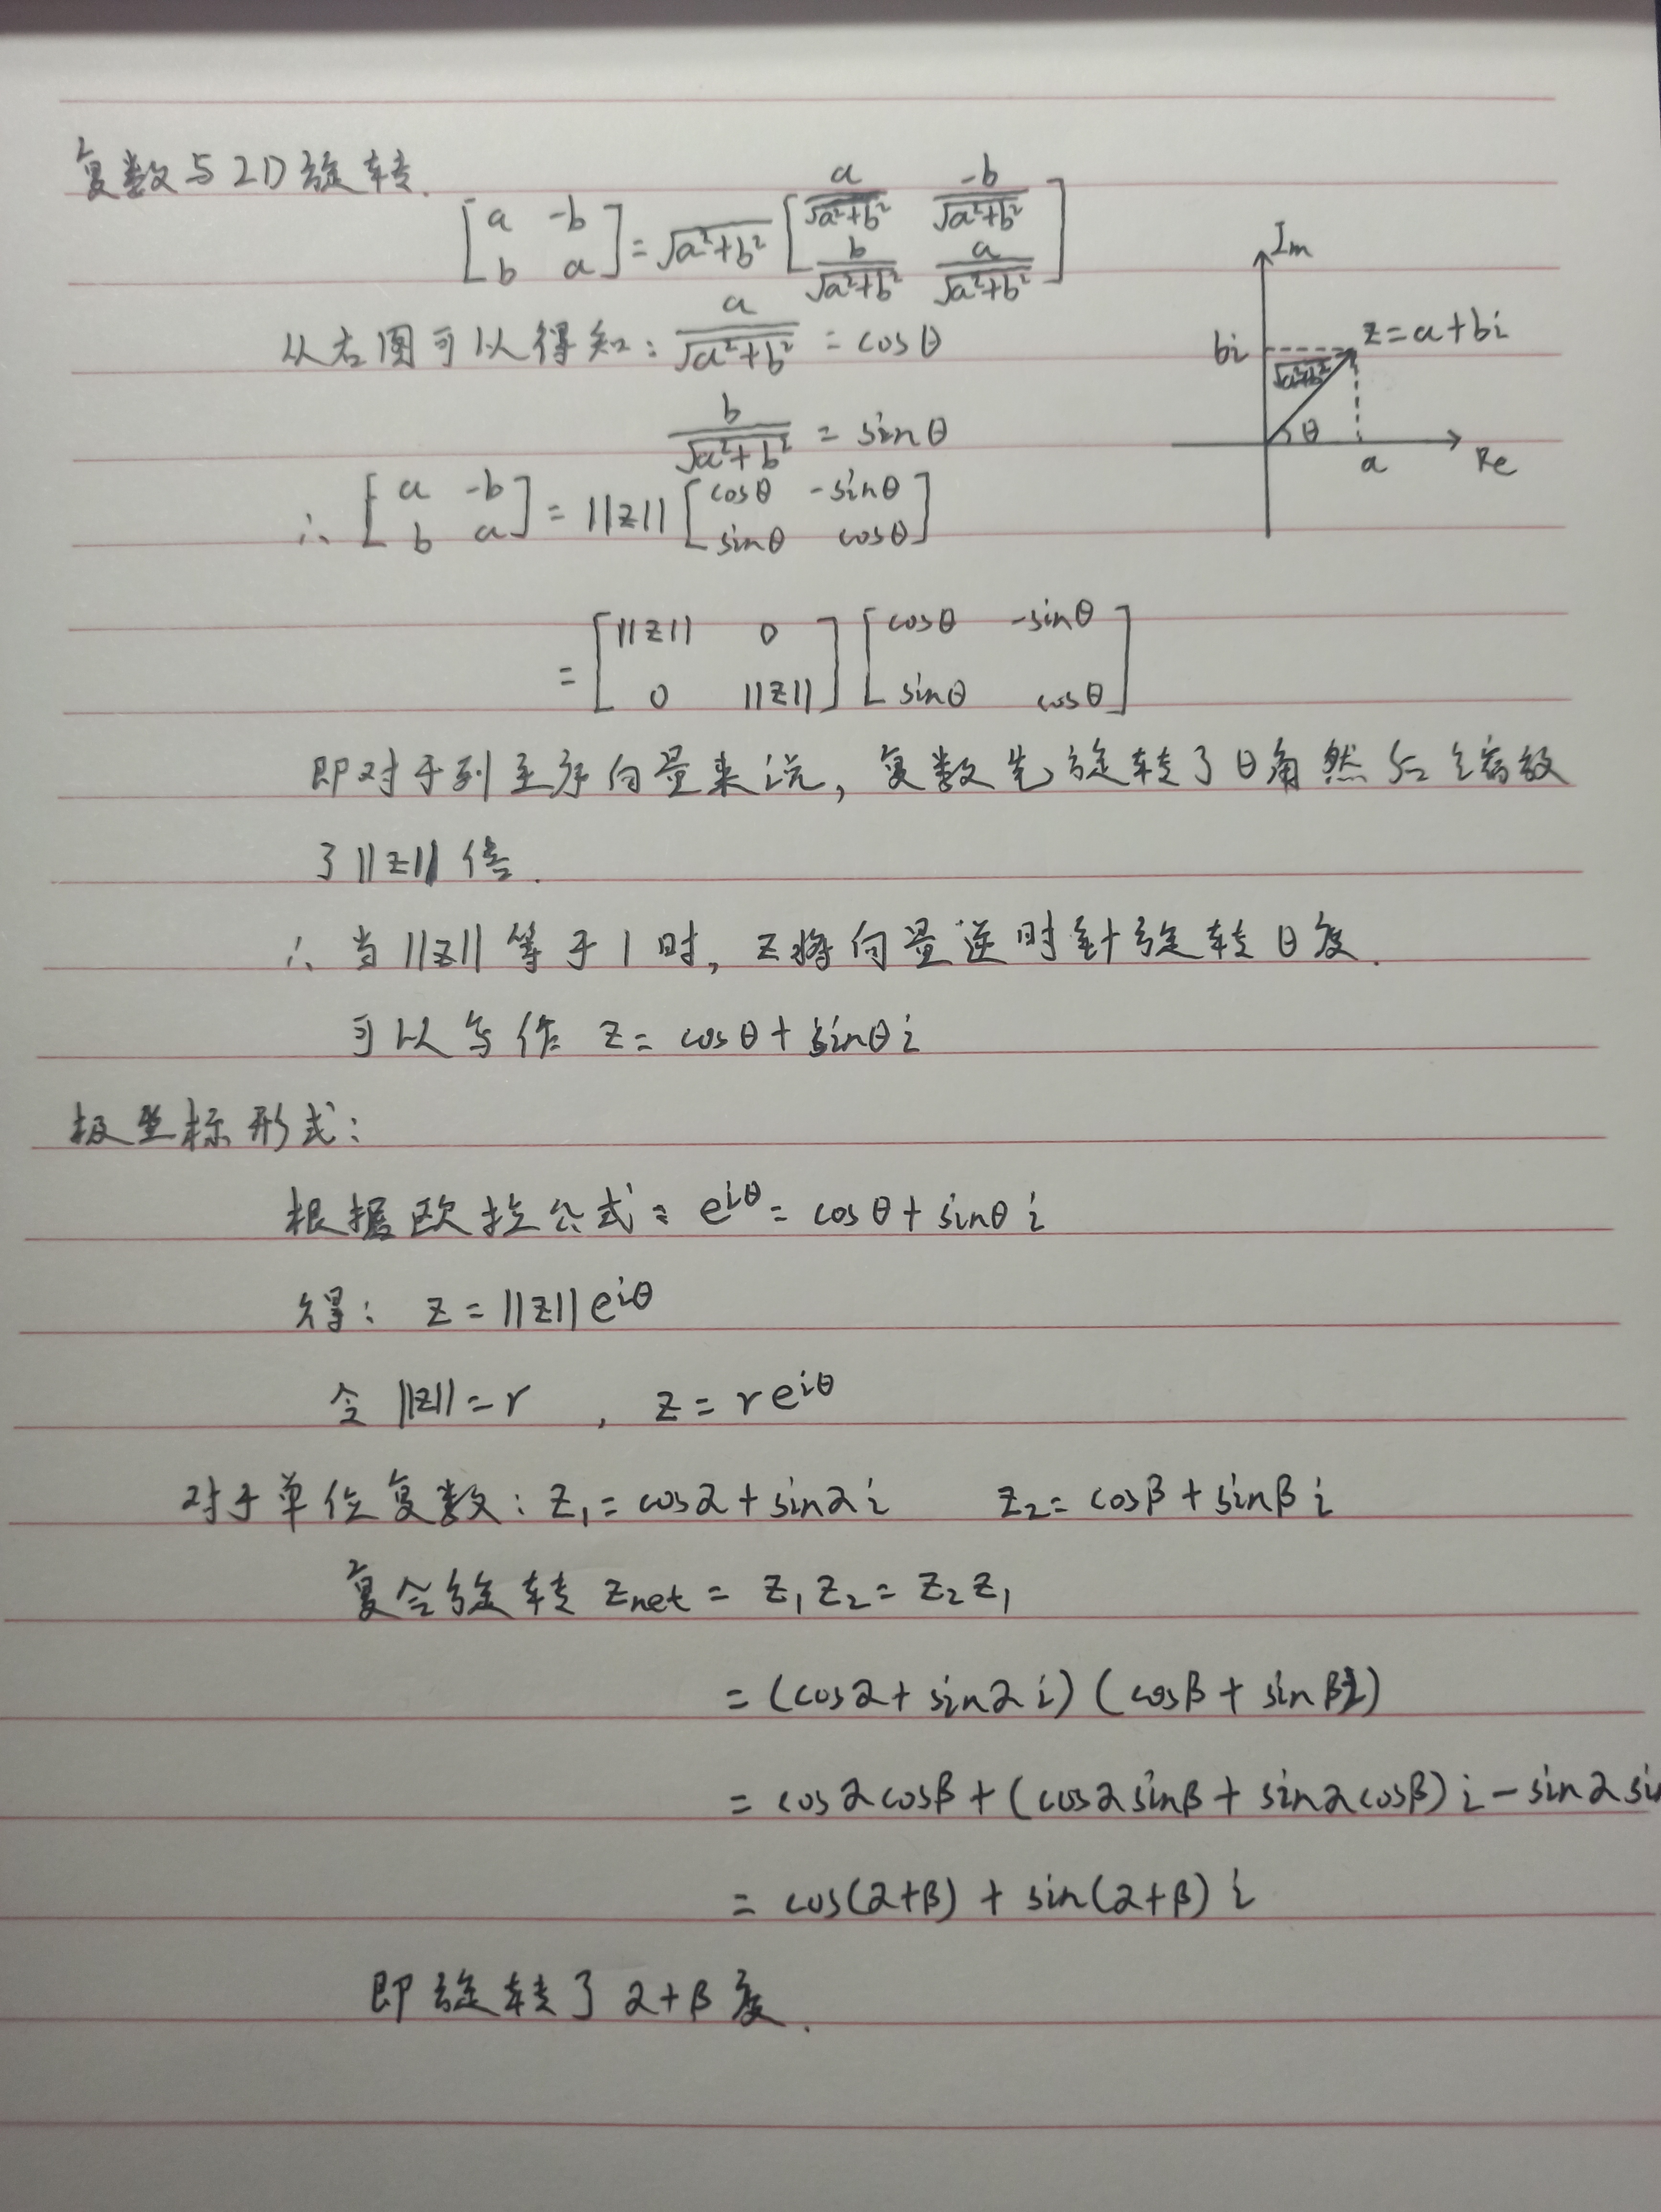 复数与2D旋转.
[a -b; b a] = √(a²+b²) [a/√(a²+b²) -b/√(a²+b²); b/√(a²+b²) a/√(a²+b²)]
从右图可以得知: a/√(a²+b²) = cosθ
b/√(a²+b²) = sinθ
Im
z=a+bi
bi
√(a²+b²)
θ
a
Re
∴ [a -b; b a] = ||z|| [cosθ -sinθ; sinθ cosθ]
= [||z|| 0; 0 ||z||] [cosθ -sinθ; sinθ cosθ]
即对于列主序向量来说, 复数先旋转了θ角然后缩放
了||z||倍.
∴ 当||z||等于1时, z将向量逆时针旋转θ度.
可以写作 z= cosθ+sinθi
极坐标形式:
根据欧拉公式: e^{iθ}= cosθ+sinθi
得: z=||z||e^{iθ}
令||z||=r , z=re^{iθ}
对于单位复数: z₁=cosα+sinαi z₂=cosβ+sinβi
复合旋转 z_net = z₁z₂=z₂z₁
=(cosα+sinαi)(cosβ+sinβi)
= cosαcosβ+(cosαsinβ+sinαcosβ)i-sinαsi
= cos(α+β)+sin(α+β)i
即旋转了α+β度.